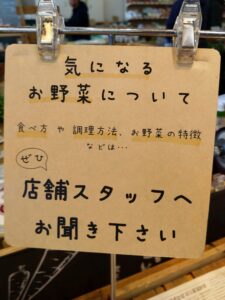 気になる
お野菜について
食べ方 や 調理方法、お野菜の特徴
などは…
ぜひ
店舗スタッフへ
お聞き下さい